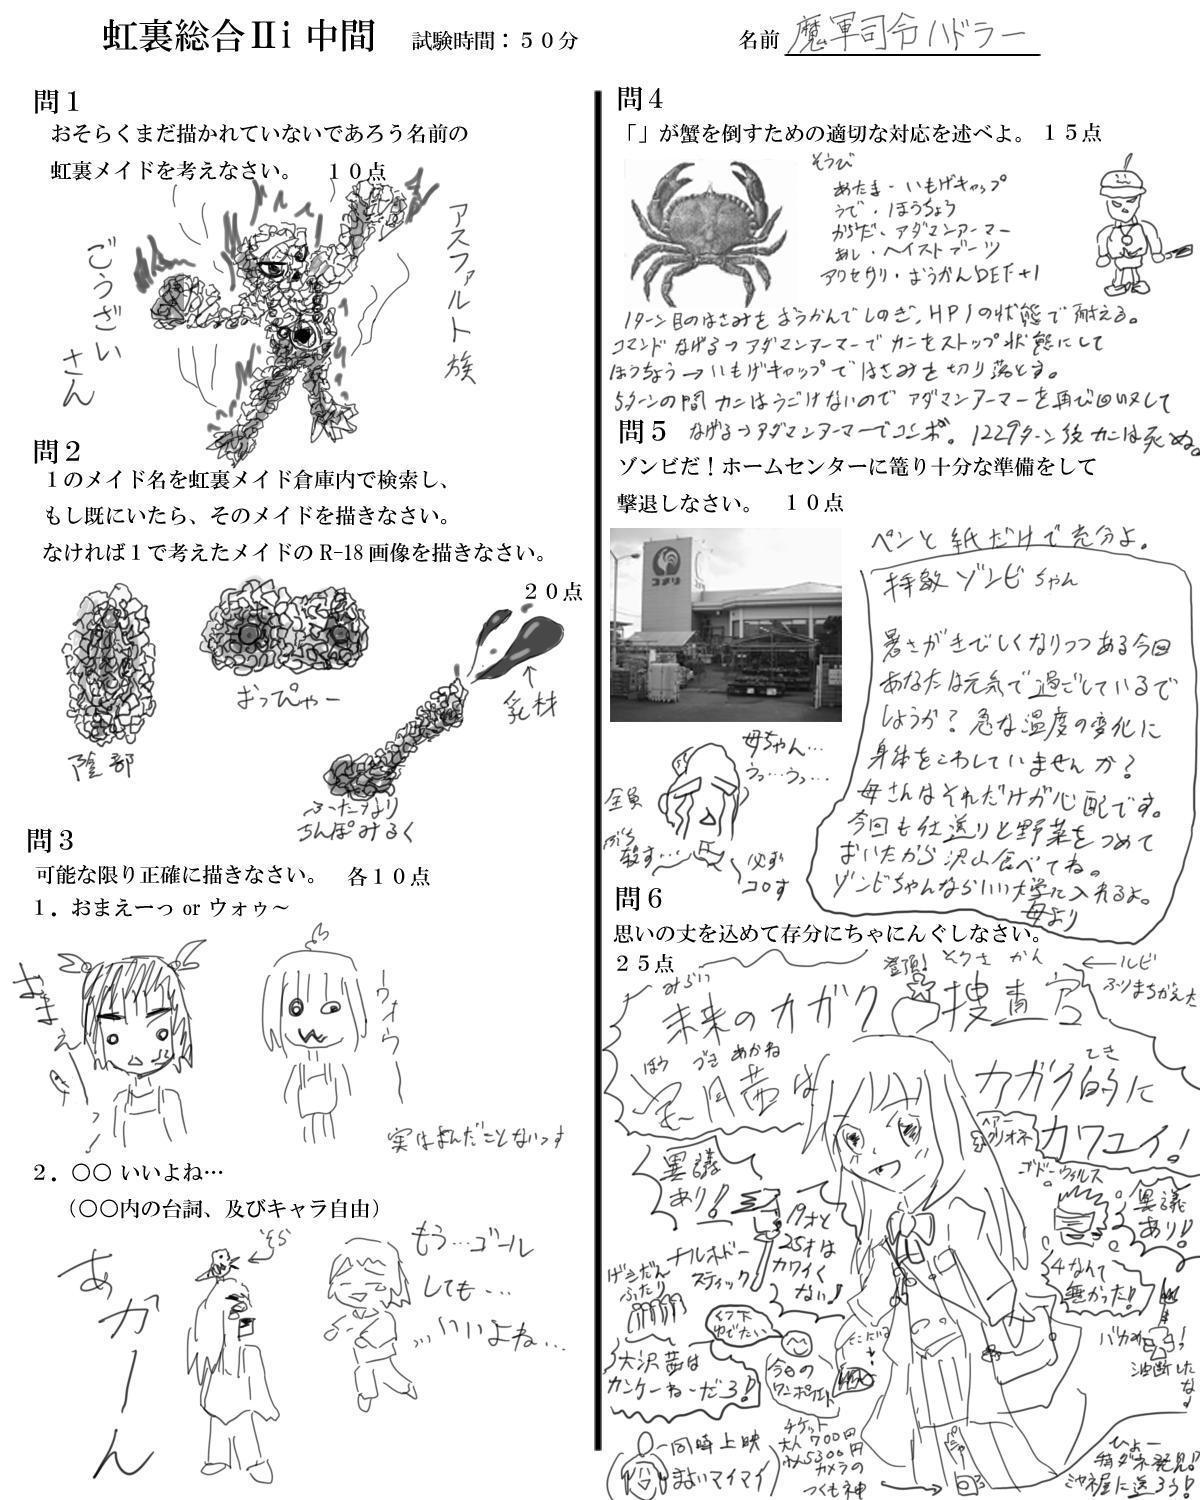 虹裏総合Ⅱi 中間
試験時間：５０分
名前 魔軍司令ハドラー
問１
おそらくまだ描かれていないであろう名前の
虹裏メイドを考えなさい。 １０点
アスファルト族
ごうざい
さん
問２
１のメイド名を虹裏メイド倉庫内で検索し、
もし既にいたら、そのメイドを描きなさい。
なければ１で考えたメイドの R-18 画像を描きなさい。
２０点
陰部
おっぴゃー
乳材
ふたなり
ちんぽみるく
問３
可能な限り正確に描きなさい。 各１０点
１．おまえーっ or ウォゥ～
おまえーっ
ウォウー
実はよんだことないっす
２．○○ いいよね…
（○○内の台詞、及びキャラ自由）
あがーん
そら
もう…ゴール
しても…
…いいよね…
問４
「」が蟹を倒すための適切な対応を述べよ。 １５点
そうび
あたま・いもげキャップ
うで・ほうちょう
からだ・アダマンアーマー
あし・ヘイストブーツ
アクセサリ・ようかんDEF+1
1ターン目のはさみをようかんでしのぎ、HP1の状態で耐える。
コマンドなげる→アダマンアーマーでカニをストップ状態にして
ほうちょう→いもげキャップではさみを切り落とす。
5ターンの間カニはうごけないのでアダマンアーマーを再び回収して
なげる→アダマンアーマーでコンボ。1229ターン後カニは死ぬ。
問５
ゾンビだ！ホームセンターに篭り十分な準備をして
撃退しなさい。 １０点
コメリ
ペンと紙だけで充分よ。
拝啓 ゾンビちゃん
暑さがきびしくなりつつある今回
あなたは元気で過ごしているで
しょうか？急な温度の変化に
身体をこわしていませんか？
母さんはそれだけが心配です。
今回も仕送りと野菜をつめて
おいたから沢山食べてね。
ゾンビちゃんならいい大学に入れるよ。
母より
母ちゃん…
うっ…うっ…
全員
ぶち
殺す…
必ず
コロす
問６
思いの丈を込めて存分にちゃにんぐしなさい。
２５点
登頂！
とうさ かん
←ルビ
ふりまちがえた
みらい
未来のカガク捜査官
ほう づき あかね
宝月茜は
てき
カガク的に
カワユイ！
ヘアー
クリオネ
異議
あり！
19才と
25才は
カワイく
ない！
ナルホドー
スティック
ゴドーウィルス
異議
あり！
4なんて
無かった！
バカめ！
油断した
な
大沢茜は
カンケーねーだろ！
今日の
ワンポイント
同時上映
まよいマイマイ
チケット
大人700円
小人5300円
カメラの
つくも神
ひょー
特ダネ発見！
ミヤネ屋に送ろう！